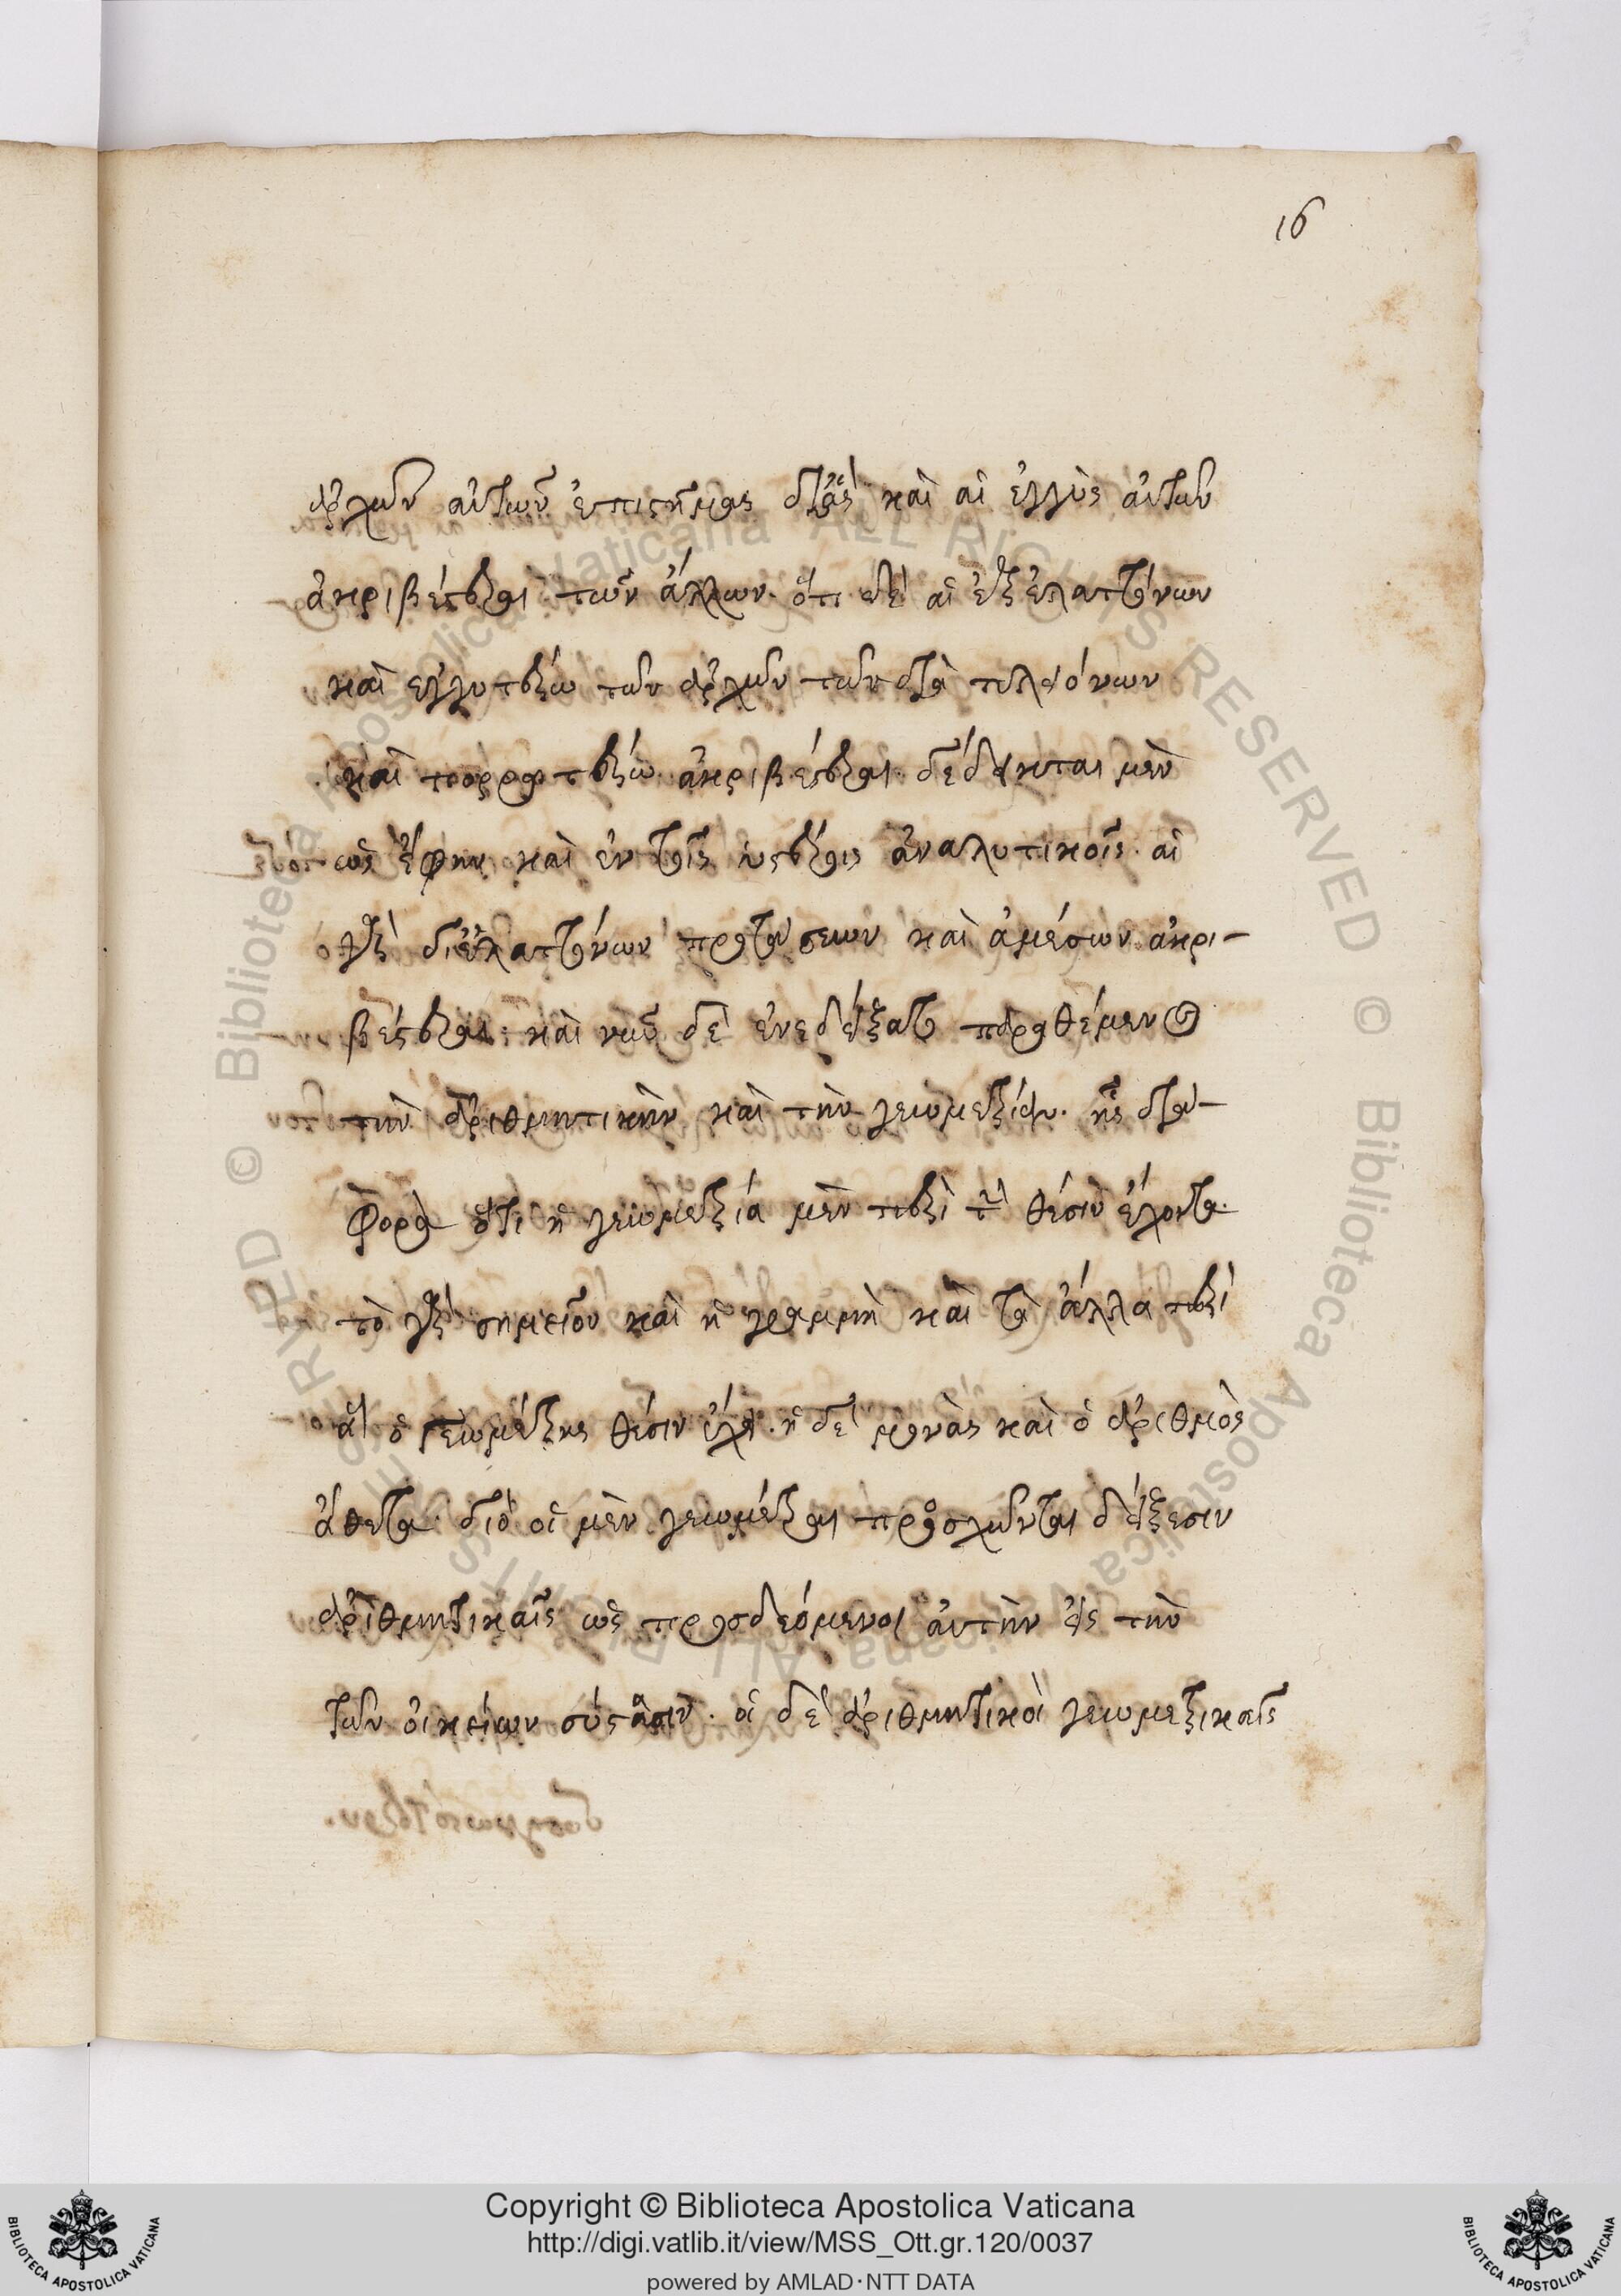 16
ἀρχῶν αὐτῶν ἐπιστήμας διὰ καὶ αἱ ἐγγὺς αὐτῶν
ἀκριβέστεραι τῶν ἄλλων. ὅτι δὲ αἱ ἐξ ἐλαττόνων
καὶ ἐγγυτέρω τῶν ἀρχῶν τῶν διὰ πλειόνων
καὶ πορρωτέρω ἀκριβέστεραι. δέδεικται μὲν
ὡς ἔφην καὶ ἐν τοῖς ὑστέροις ἀναλυτικοῖς. αἱ
γὰρ δι' ἐλαττόνων προτάσεων καὶ ἀμέσων ἀκρι-
βέστεραι. καὶ νῦν δὲ ἐνεδείξατο παραθέμενος
τὴν ἀριθμητικὴν καὶ τὴν γεωμετρίαν. ἧς δια-
φορὰ ὅτι ἡ γεωμετρία μὲν περὶ τὰ θέσιν ἔχοντα.
τὸ γὰρ σημεῖον καὶ ἡ γραμμὴ καὶ τὰ ἄλλα περὶ
ἃ ὁ γεωμέτρης θέσιν ἔχει. ἡ δὲ μονὰς καὶ ὁ ἀριθμὸς
ἄθετα. διὸ οἱ μὲν γεωμέτραι προσχρῶνται δείξεσιν
ἀριθμητικαῖς ὡς προσδεόμενοι αὐτὴν εἰς τὴν
τῶν οἰκείων σύστασιν. οἱ δὲ ἀριθμητικοὶ γεωμετρικαῖς
Copyright © Biblioteca Apostolica Vaticana
http://digi.vatlib.it/view/MSS_Ott.gr.120/0037
powered by AMLAD·NTT DATA